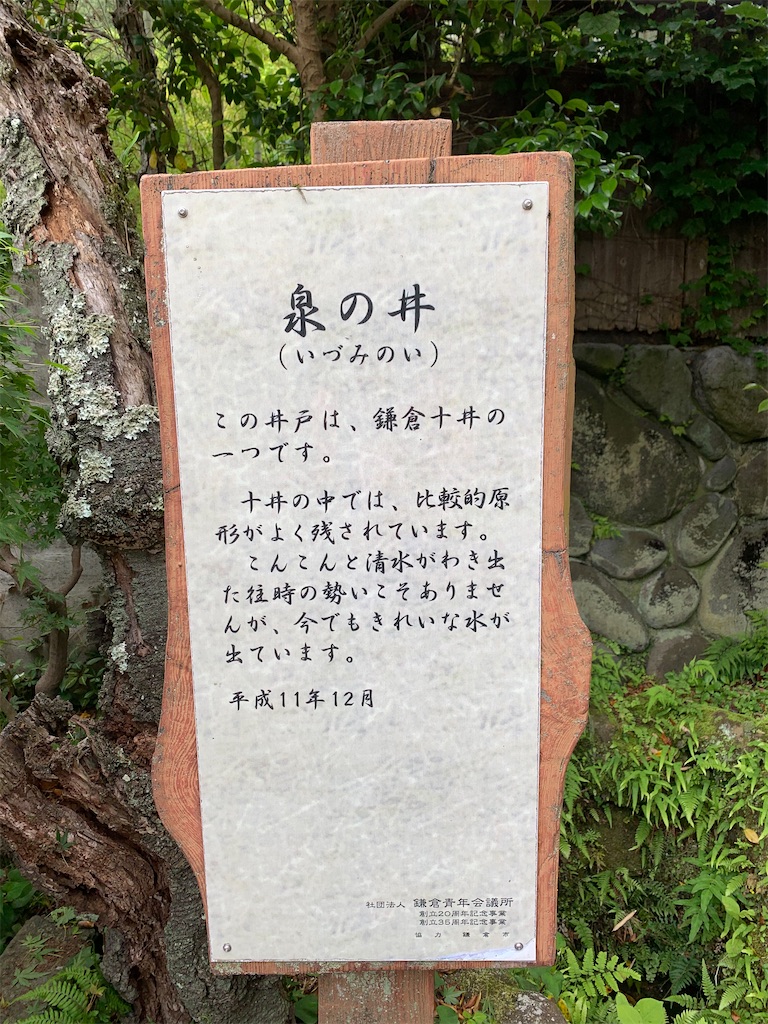 泉の井
(いづみのい)
この井戸は、鎌倉十井の
一つです。
十井の中では、比較的原
形がよく残されています。
こんこんと清水がわき出
た往時の勢いこそありませ
んが、今でもきれいな水が
出ています。
平成11年12月
社団法人 鎌倉青年会議所
創立20周年記念事業
創立35周年記念事業
協力 鎌倉市